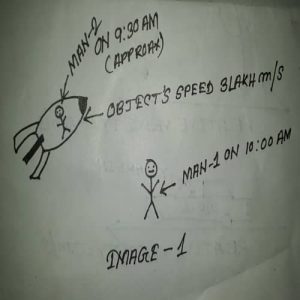 MAN-2
ON 9:30 AM
(APPROAX)
OBJECT'S SPEED 3LAKH m/s
MAN-1 ON 10:00 AM
IMAGE-1